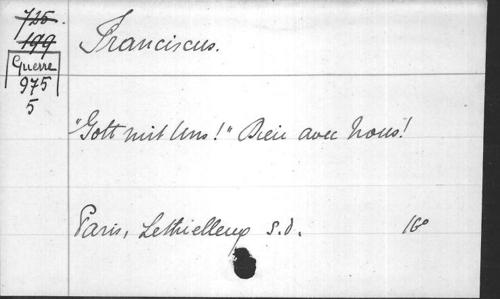 725.
199
Guerre
975
5
Franciscus.
"Gott mit Uns!" Dieu avec Nous!
Paris, Lethielleux s.d. 16°